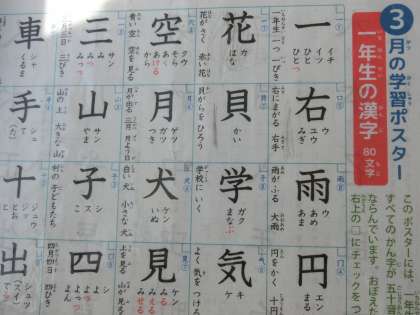 3月の学習ポスター
一年生の漢字
80文字
このポスターには、
すべてのかん字が五十音
ならんでいます。おぼえた
右上の□にチェックをつ
一
イチ
イツ
ひと
ひとつ
一年生 一つ 一ぴき
右
ウ
ユウ
みぎ
右にまがる 右手
雨
ウ
あめ
あま
雨がふる 大雨
円
エン
円をかく
花
カ
はな
花がさく 赤い花
貝
かい
貝がらをひろう
学
ガク
まなぶ
学校にいく
気
キ
ケ
よく気をつける
空
クウ
そら
あく
あける
から
青い空 空を見る
月
ゲツ
ガツ
つき
犬
ケン
いぬ
白い犬 小さな犬
見
ケン
みる
みえる
みせる
三
サン
み
みつ
みっつ
三日 三びき
山
サン
やま
山の上 大きな山
子
シ
ス
こ
村の子どもたち
四
シ
よ
よつ
よっつ
車
くるま
手
シュ
て
（た）
十
ジュウ
ジッ
とお
と
出
シュツ
（スイ）